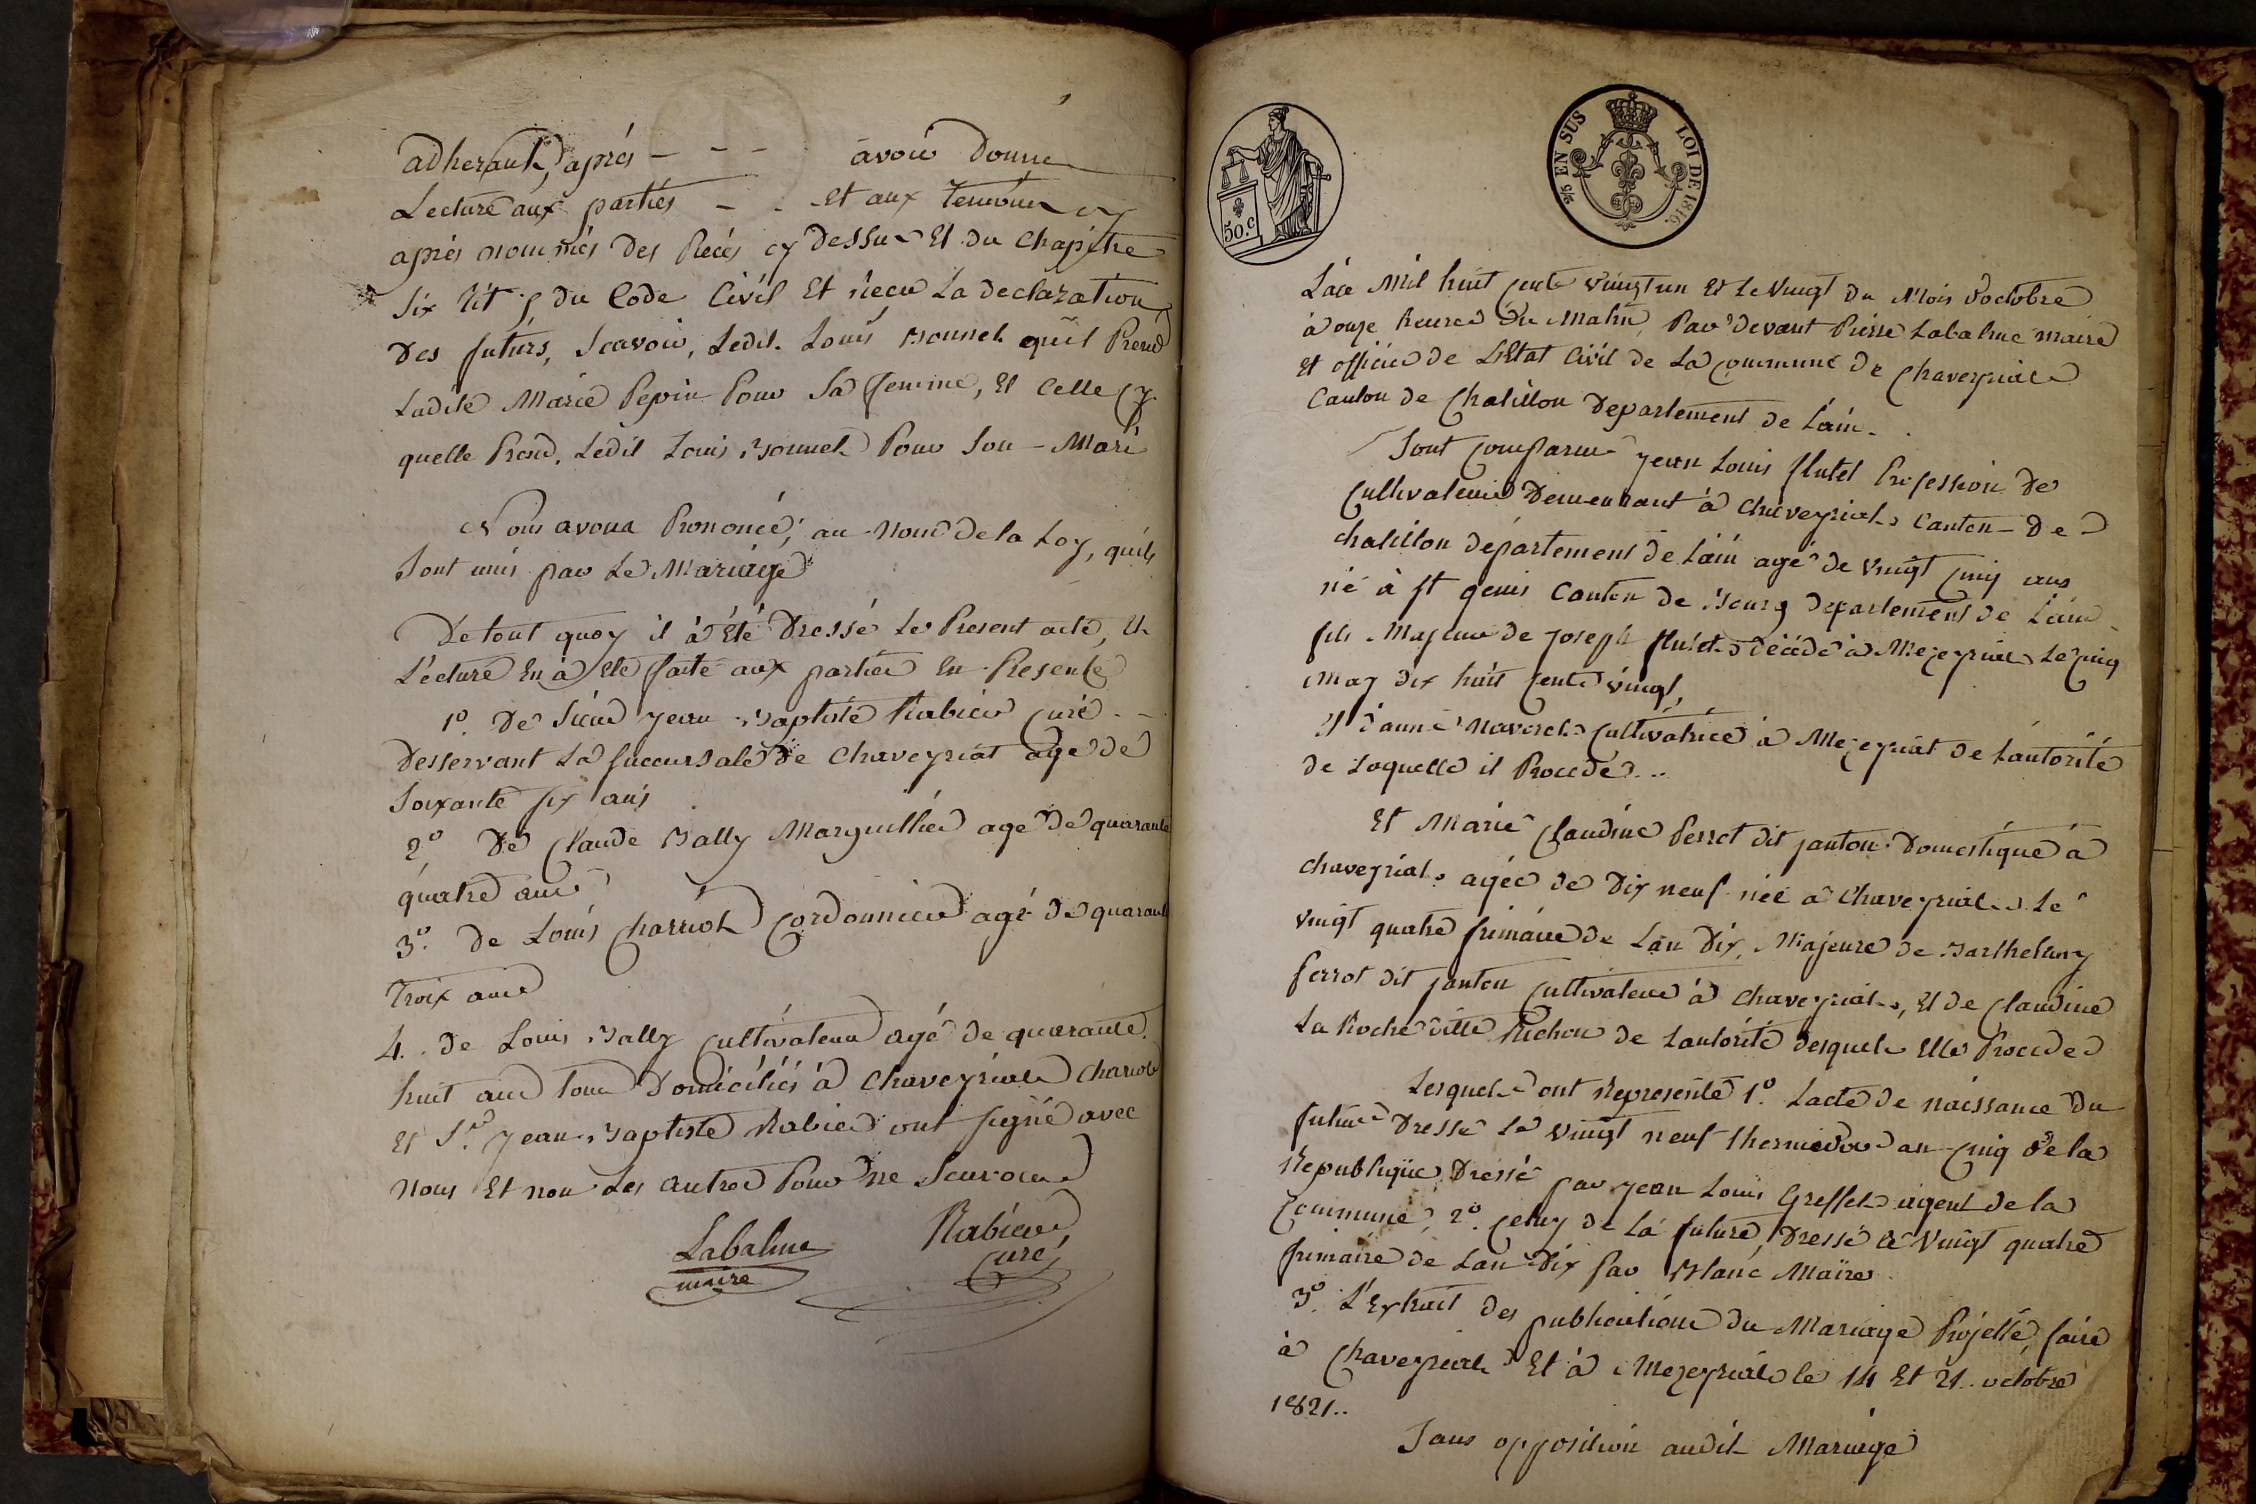 adherant, après - - - avoir Donné
Lecture aux partiés - - Et aux Temoins cy
après nommés Des Piecés cy Dessus Et du Chapitre
Six tit 5 du Code Civil Et Recu La declaration
Des futurs, Scavoir, Ledit Louis Monnet quil Prend
Ladite Marie Pepin Pour Sa femme, Et Celle Cy
quelle Prend Ledit Louis Monnet Pour Son - Mari
Nous avons Prononcé, au Nom de la Loy, quils
Sont unis par Le Mariage
De tout quoy il à Eté Dressé Le Present acte, Et
Lecture En à Eté faite aux parties En Presence
1º. De Sieur Jean Baptiste Rabier Curé -
Desservant La Succursale de Chaveyriat agé de
Soixante six ans
2º. De Claude Bally Marguillier agé de quarante
quatre ans
3º. de Louis Charriot Cordonnier agé de quarante
Troix ans
4. de Louis Bally Cultivateur agé de quarante
huit ans tous Domiciliés à Chaveyriat Chariot
et Sr. Jean Baptiste Rabier ont signé avec
Nous Et non Les autres Pour ne Scavoir
Labalme Rabier
maire Curé
3/10 EN SUS LOI DE 1816.
50.c
Lan Mil huit cent vingt un Et Le Vingt du Mois D'octobre
à onze heures Du Matin Par Devant Pierre Labalme maire
Et officier de L'Etat Civil de La Commune De Chaveyriat
Canton de Chatillon Departement de Lain.
Sont Comparus Jean Louis flutet Profession de
Cultivateur Demeurant à Chaveyriat Canton - De
chatillon département de Lain agé de vingt cinq ans
né à St genis Canton de Bourg departement de Lain
fils Majeur de Joseph flutet Décédé à Mezeyriat Le cinq
May dix huit cent vingt,
Et d'anne Naveret Cultivatrice à Mezeyriat de Lautorité
de Laquelle il Procede..
Et Marie Claudine Perret dit janton Domestique à
Chaveyriat agée de Dix neuf née à Chaveyriat Le
vingt quatre frimaire de Lan Dix, Majeure de Barthelemy
Perrot dit janton Cultivateur à Chaveyriat, Et de Claudine
La Roche ditte Richon de Lautorité desquels Elle Procede
Lesquels ont Representé 1º. Lacte de naissance Du
futur Dressé Le Vingt neuf thermidor an cinq de la
Republique Dressé par Jean Louis Greffet agent de la
Commune, 2º. celuy de La future, Dressé Le Vingt quatre
frimaire de Lan Dix Par Blanc Maire
3º. L'Extrait des publications du Mariage Projetté, faire
à Chaveyriat Et à Mezeyriat le 14 Et 21. octobre
1821..
Sans opposition audit Mariage